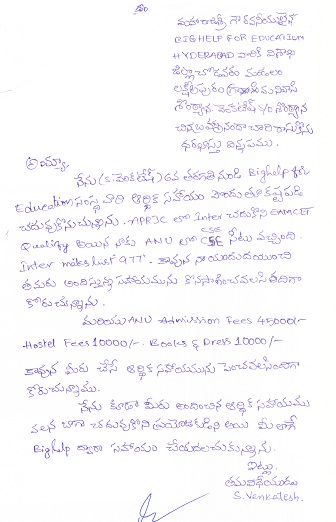 మహారాజశ్రీ గౌరవనీయులైన
BIG HELP FOR EDUCATION
HYDERABAD వారికి విశాఖ
జిల్లా చోడవరం మండలం
లక్ష్మీపురం గ్రామ నివాసి
వెంకటేష్ S/o
చిన్న రాసుకొను
దరఖాస్తు విన్నపము.
అయ్యా,
నేను (S. వెంకటేష్) 6వ తరగతి నుండి Bighelp for
Education సంస్థ వారి ఆర్థిక సహాయం పొందుతూ కష్టపడి
చదువుకొనుచున్నాను. APRJC లో Inter చదువుకొని EAMCET
Qualify అయిన నాకు ANU లో CSE సీటు వచ్చింది.
CSE
Inter marks list 977. కావున నా యందు దయయుంచి
తమరు అందిస్తున్న సహాయమును కొనసాగించవలసిందిగా
కోరుచున్నాను.
మరియు ANU Admission Fees 45000/-
Hostel Fees 10000/- Books & Dress 10000/-
కావున మీరు చేసే ఆర్థిక సహాయమును పెంచవలసిందిగా
కోరుచున్నాను.
నేను కూడా మీరు అందించిన ఆర్థిక సహాయము
వలన బాగా చదువుకొని ప్రయోజకుడిని అయి మీ లాగే
Bighelp ద్వారా సహాయం చేయదలచుకున్నాను.
ఇట్లు,
తమ విధేయుడు
S. Venkatesh.